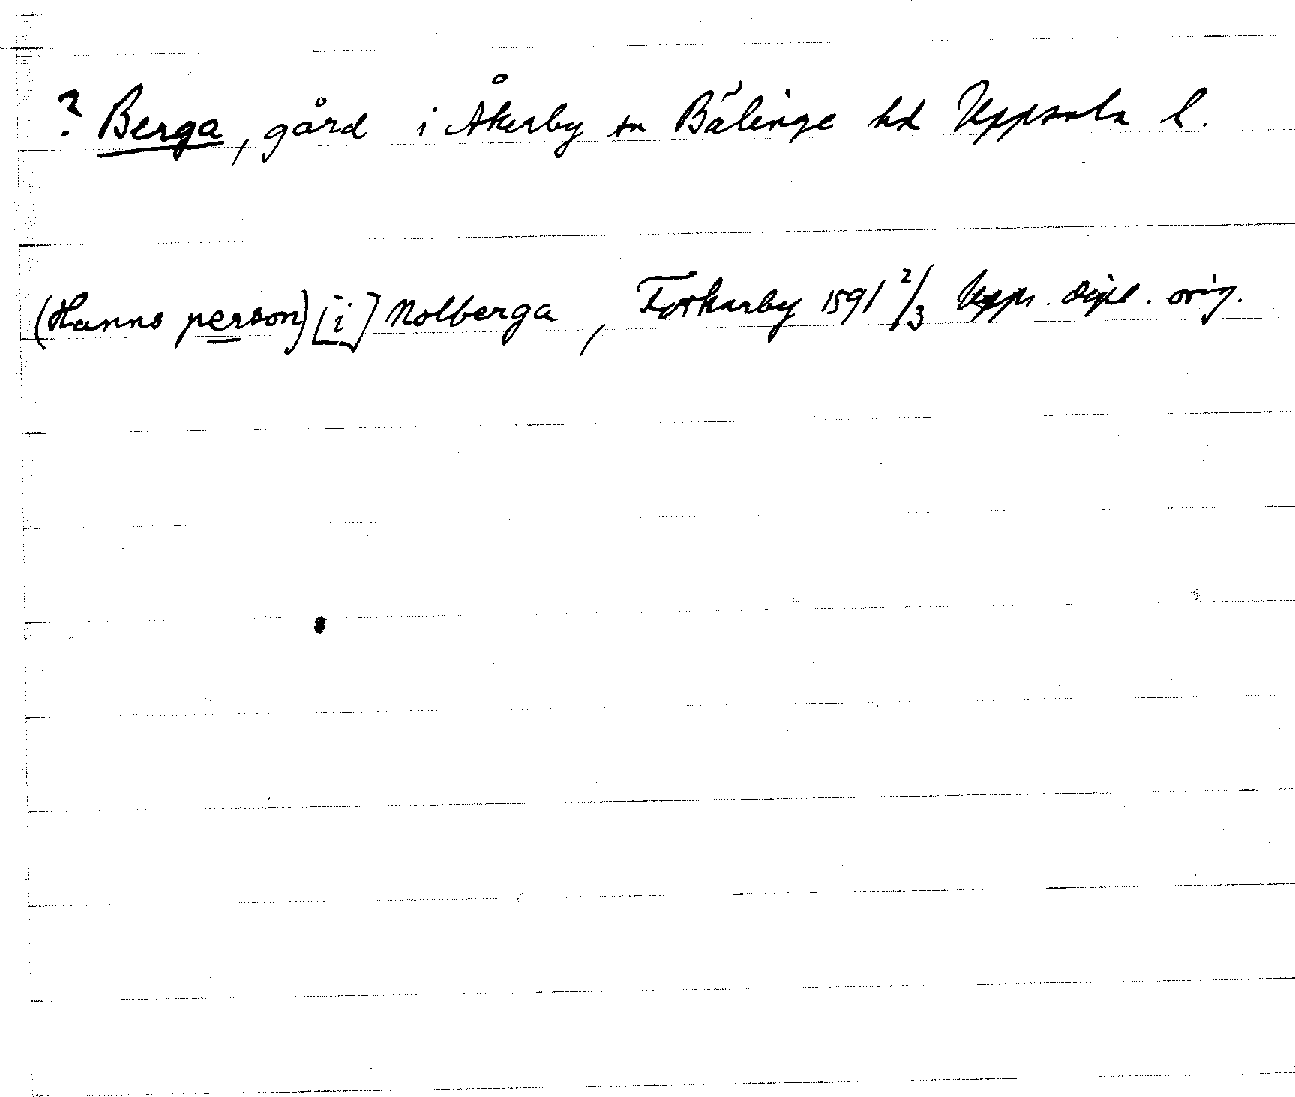 ? Berga, gård i Åkerby sn Bälinge hd Uppsala l.
(Hanns person) [i] Nolberga, Forkarby 1591 2/3 Upps. dipl. orig.